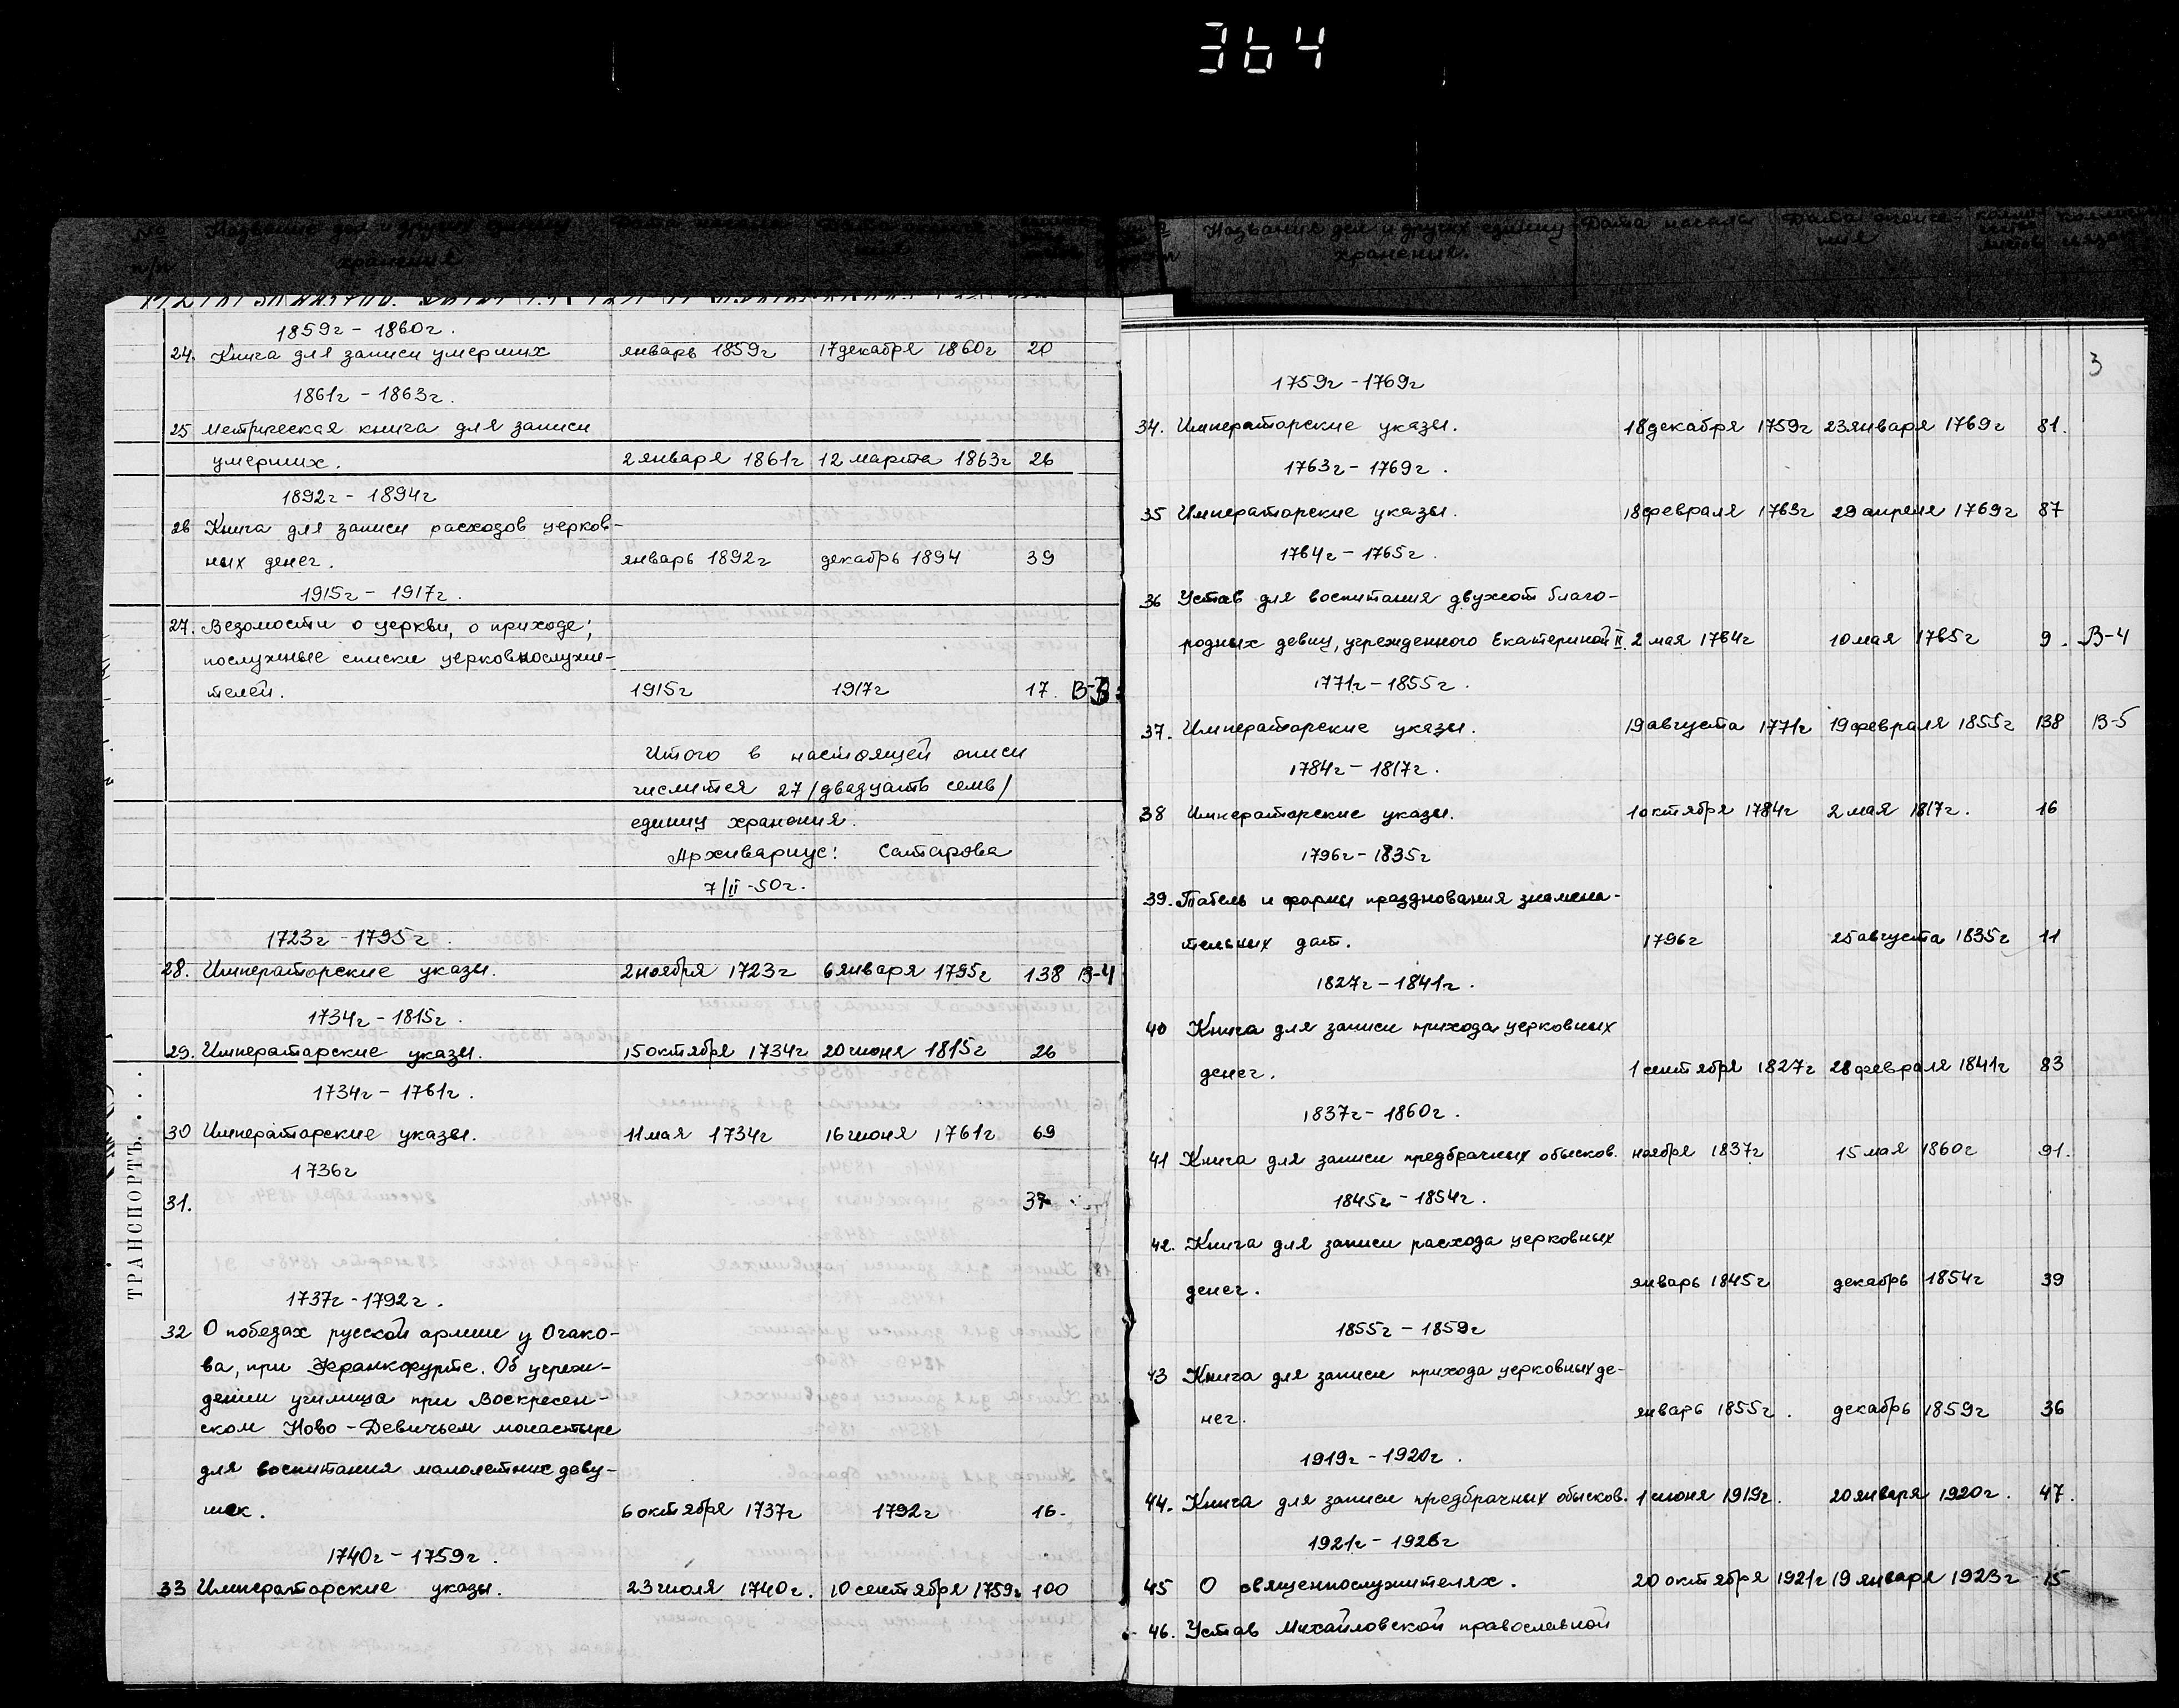 364
№ Название дел и других единиц Дата начала Дата оконча-
п/п хранения ния
1859г – 1860г.
24. Книга для записи умерших январь 1859г 17 декабря 1860г 20
1861г – 1863г.
25 Метрическая книга для записи
умерших. 2 января 1861г 12 марта 1863г 26
1892г – 1894г
26 Книга для записи расходов церков-
ных денег. январь 1892г декабрь 1894 39
1915г – 1917г.
27. Ведомости о церкви, о приходе;
послужные списки церковнослужи-
телей. 1915г 1917г 17. В-3
Итого в настоящей описи
числится 27 /двадцать семь/
единиц хранения.
Архивариус: Саттарова
7/II-50г.
1723г – 1795г.
28. Императорские указы. 2 ноября 1723г 6 января 1795г 138 В-4
1734г – 1815г.
29. Императорские указы. 15 октября 1734г 20 июня 1815г 26
1734г – 1761г.
30 Императорские указы. 11 мая 1734г 16 июня 1761г 69
1736г
31. 37
ТРАНСПОРТЪ. . . .
1737г – 1792г.
32 О победах русской армии у Очако-
ва, при Франкфурте. Об учреж-
дении училища при Воскресен-
ском Ново-Девичьем монастыре
для воспитания малолетних деву-
шек. 6 октября 1737г 1792г 16.
1740г – 1759г.
33 Императорские указы. 23 июля 1740г. 10 сентября 1759г 100
Название дел и других единиц Дата начала Дата оконча-
хранения. ния
3
1759г – 1769г
34. Императорские указы. 18 декабря 1759г 23 января 1769г 81.
1763г – 1769г.
35 Императорские указы. 18 февраля 1763г 29 апреля 1769г 87
1764г – 1765г.
36 Устав для воспитания двухсот благо-
родных девиц, учрежденного Екатериной II. 2 мая 1764г 10 мая 1765г 9. В-4
1771г – 1855г.
37. Императорские указы. 19 августа 1771г 19 февраля 1855г 138 В-5
1784г – 1817г.
38 Императорские указы. 1 октября 1784г 2 мая 1817г. 16
1796г – 1835г
39. Табель и формы празднования знамена-
тельных дат. 1796г 25 августа 1835г 11
1827г – 1841г.
40 Книга для записи прихода церковных
денег. 1 сентября 1827г 28 февраля 1841г 83
1837г – 1860г.
41 Книга для записи предбрачных обысков. ноября 1837г 15 мая 1860г 91.
1845г – 1854г.
42. Книга для записи расхода церковных
денег. январь 1845г декабрь 1854г 39
1855г – 1859г
43 Книга для записи прихода церковных де-
нег. январь 1855г. декабрь 1859г 36
1919г – 1920г.
44. Книга для записи предбрачных обысков. 1 июня 1919г. 20 января 1920г. 47.
1921г – 1926г
45 О священнослужителях. 20 октября 1921г 19 января 1923г 15
46. Устав Михайловской православной